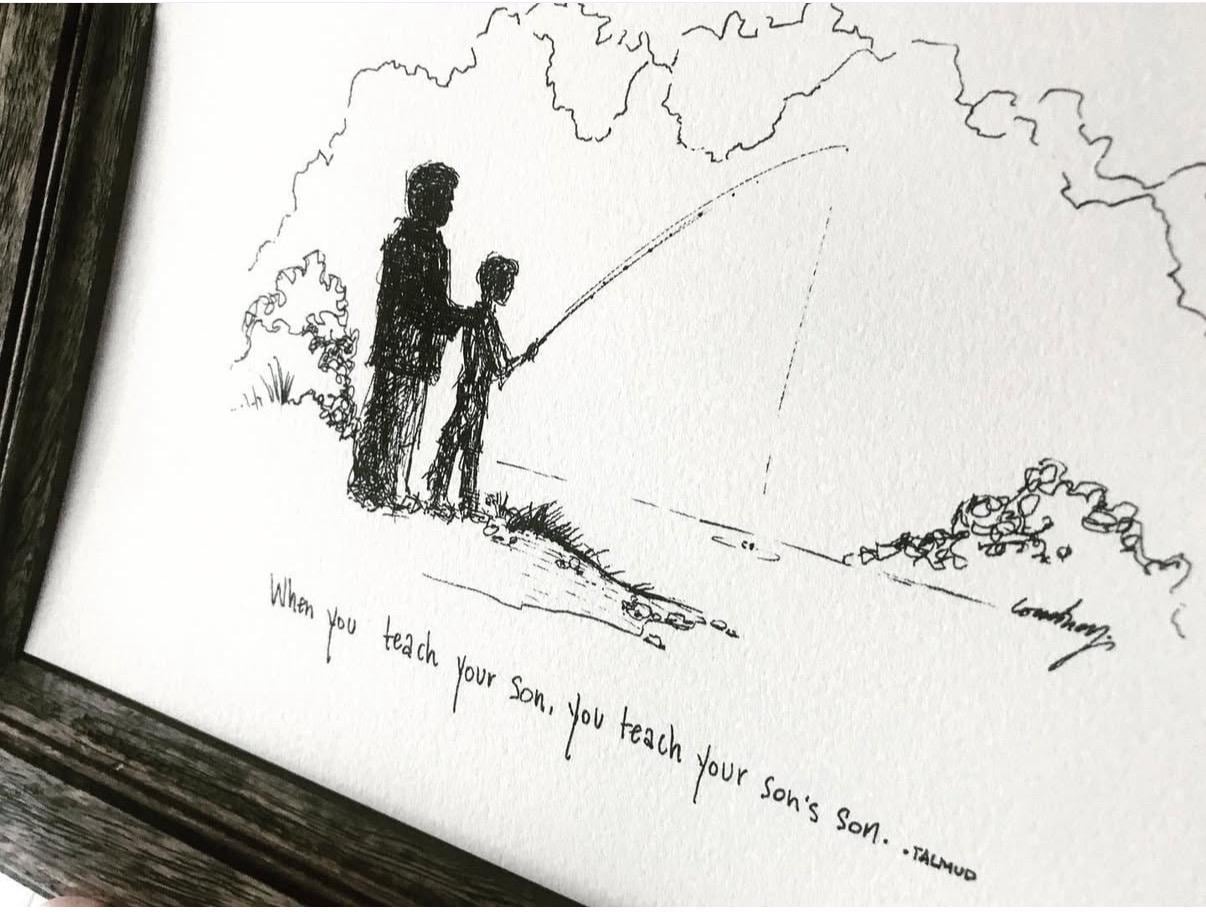 When you teach your son, you teach your son's son. .TALMUD